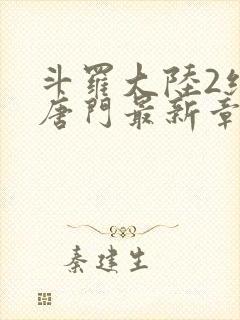 斗羅大陸2
唐門最新章
秦建生